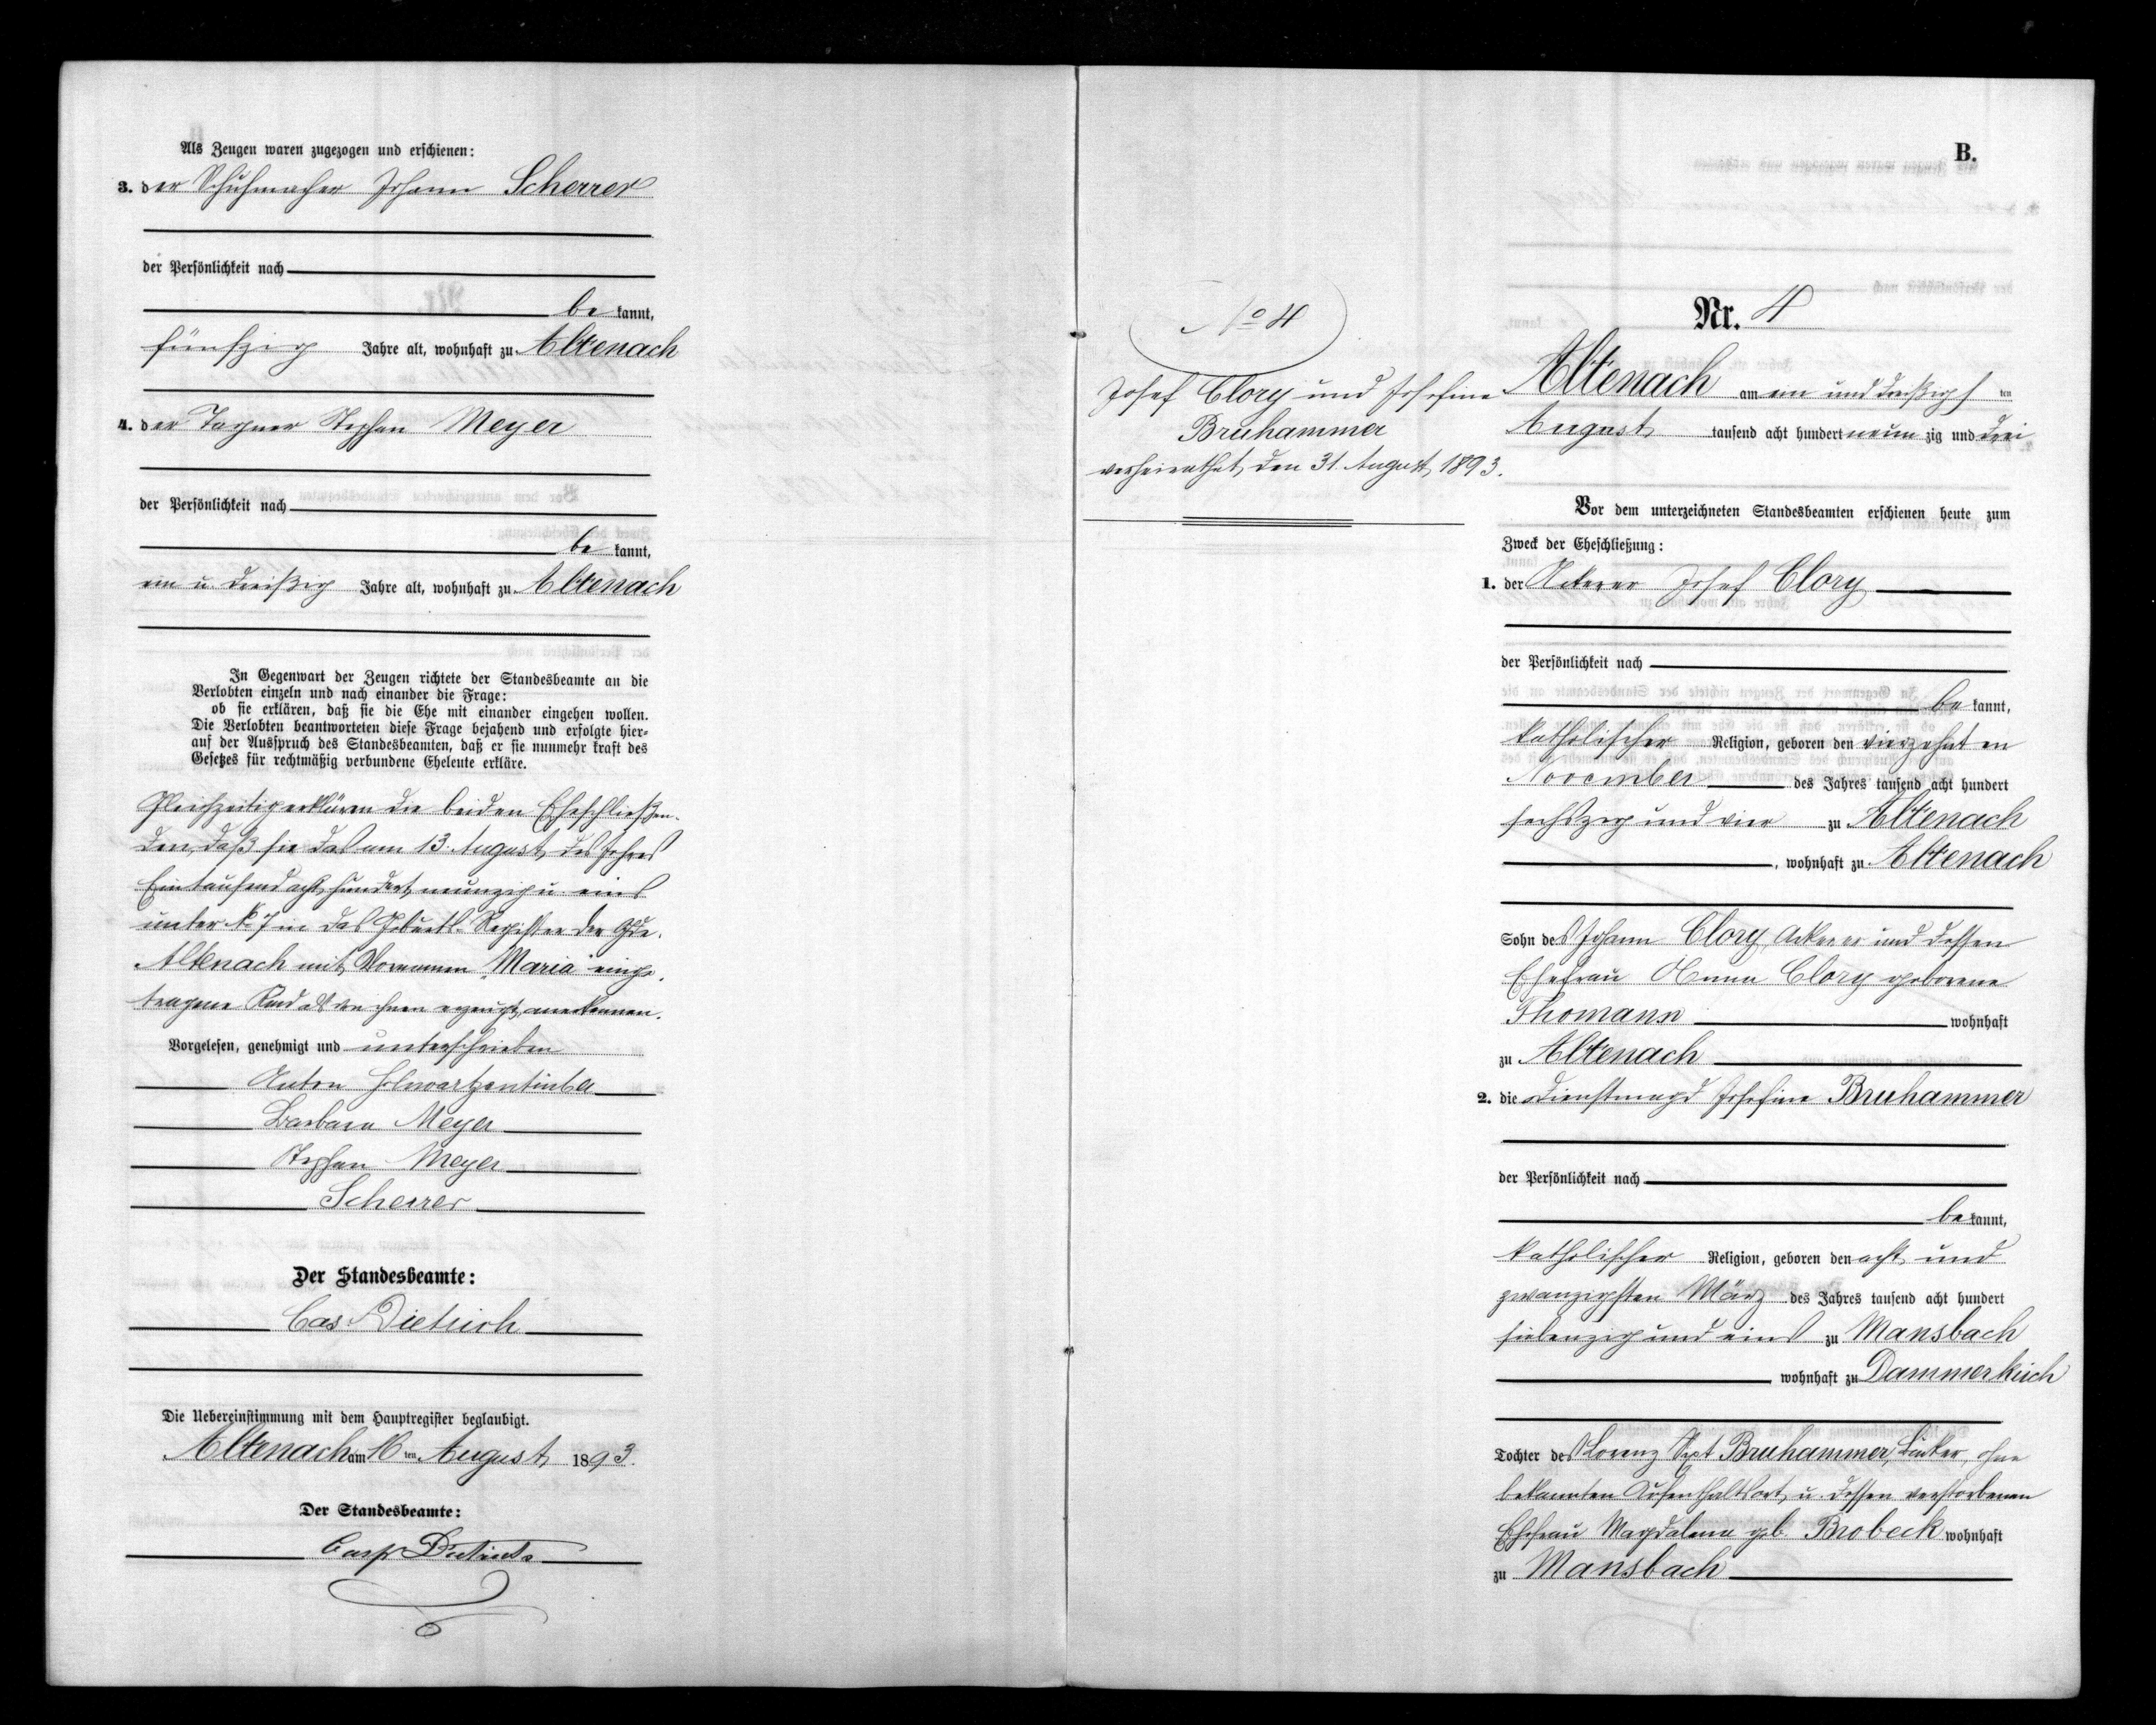 Als Zeugen waren zugezogen und erschienen:
3. der Schuhmacher Johann Scherrer
der Persönlichkeit nach
be kannt,
fünfzig Jahre alt, wohnhaft zu Altenach
4. der Tagner Stephan Meyer
der Persönlichkeit nach
be kannt,
ein u. dreißig Jahre alt, wohnhaft zu Altenach
In Gegenwart der Zeugen richtete der Standesbeamte an die
Verlobten einzeln und nach einander die Frage:
ob sie erklären, daß sie die Ehe mit einander eingehen wollen.
Die Verlobten beantworteten diese Frage bejahend und erfolgte hier-
auf der Ausspruch des Standesbeamten, daß er sie nunmehr kraft des
Gesetzes für rechtmäßig verbundene Eheleute erkläre.
Gleichzeitig erklären die beiden Eheschließen-
den, daß sie das am 13. August des Jahres
Eintausend acht hundert neunzig u. eins
unter No 7 in das Geburts-Register der Gde.
Altenach mit Vornamen "Maria" einge-
tragene Kind als von ihnen erzeugt, anerkennen.
Vorgelesen, genehmigt und unterschrieben
Anton Schwartzentruber
Barbara Meyer
Stephan Meyer
Scherrer
Der Standesbeamte:
Cas Dietrich
Die Uebereinstimmung mit dem Hauptregister beglaubigt.
Altenach am 16 ten August 1893.
Der Standesbeamte:
Casp Dietrich
No 4
Josef Clory und Josefine
Bruhammer
verheirathet, den 31. August 1893.
B.
Nr. 4
Altenach am ein und dreißigs ten
August tausend acht hundert neun zig und drei
Vor dem unterzeichneten Standesbeamten erschienen heute zum
Zweck der Eheschließung:
1. der Ackerer Josef Clory
der Persönlichkeit nach
be kannt,
katholischer Religion, geboren den vierzehnten
November des Jahres tausend acht hundert
sechszig und vier zu Altenach
, wohnhaft zu Altenach
Sohn des Johann Clory, Ackerer und dessen
Ehefrau Anna Clory geborene
Thomann wohnhaft
zu Altenach
2. die Dienstmagd Josefine Bruhammer
der Persönlichkeit nach
be kannt,
katholischer Religion, geboren den acht und
zwanzigsten März des Jahres tausend acht hundert
siebenzig und eins zu Mansbach
wohnhaft zu Dammerkirch
Tochter des Lorenz Sept Bruhammer, ohne
bekannten Aufenthaltsort, u. dessen verstorbenen
Ehefrau Magdalena geb. Brobeck wohnhaft
zu Mansbach